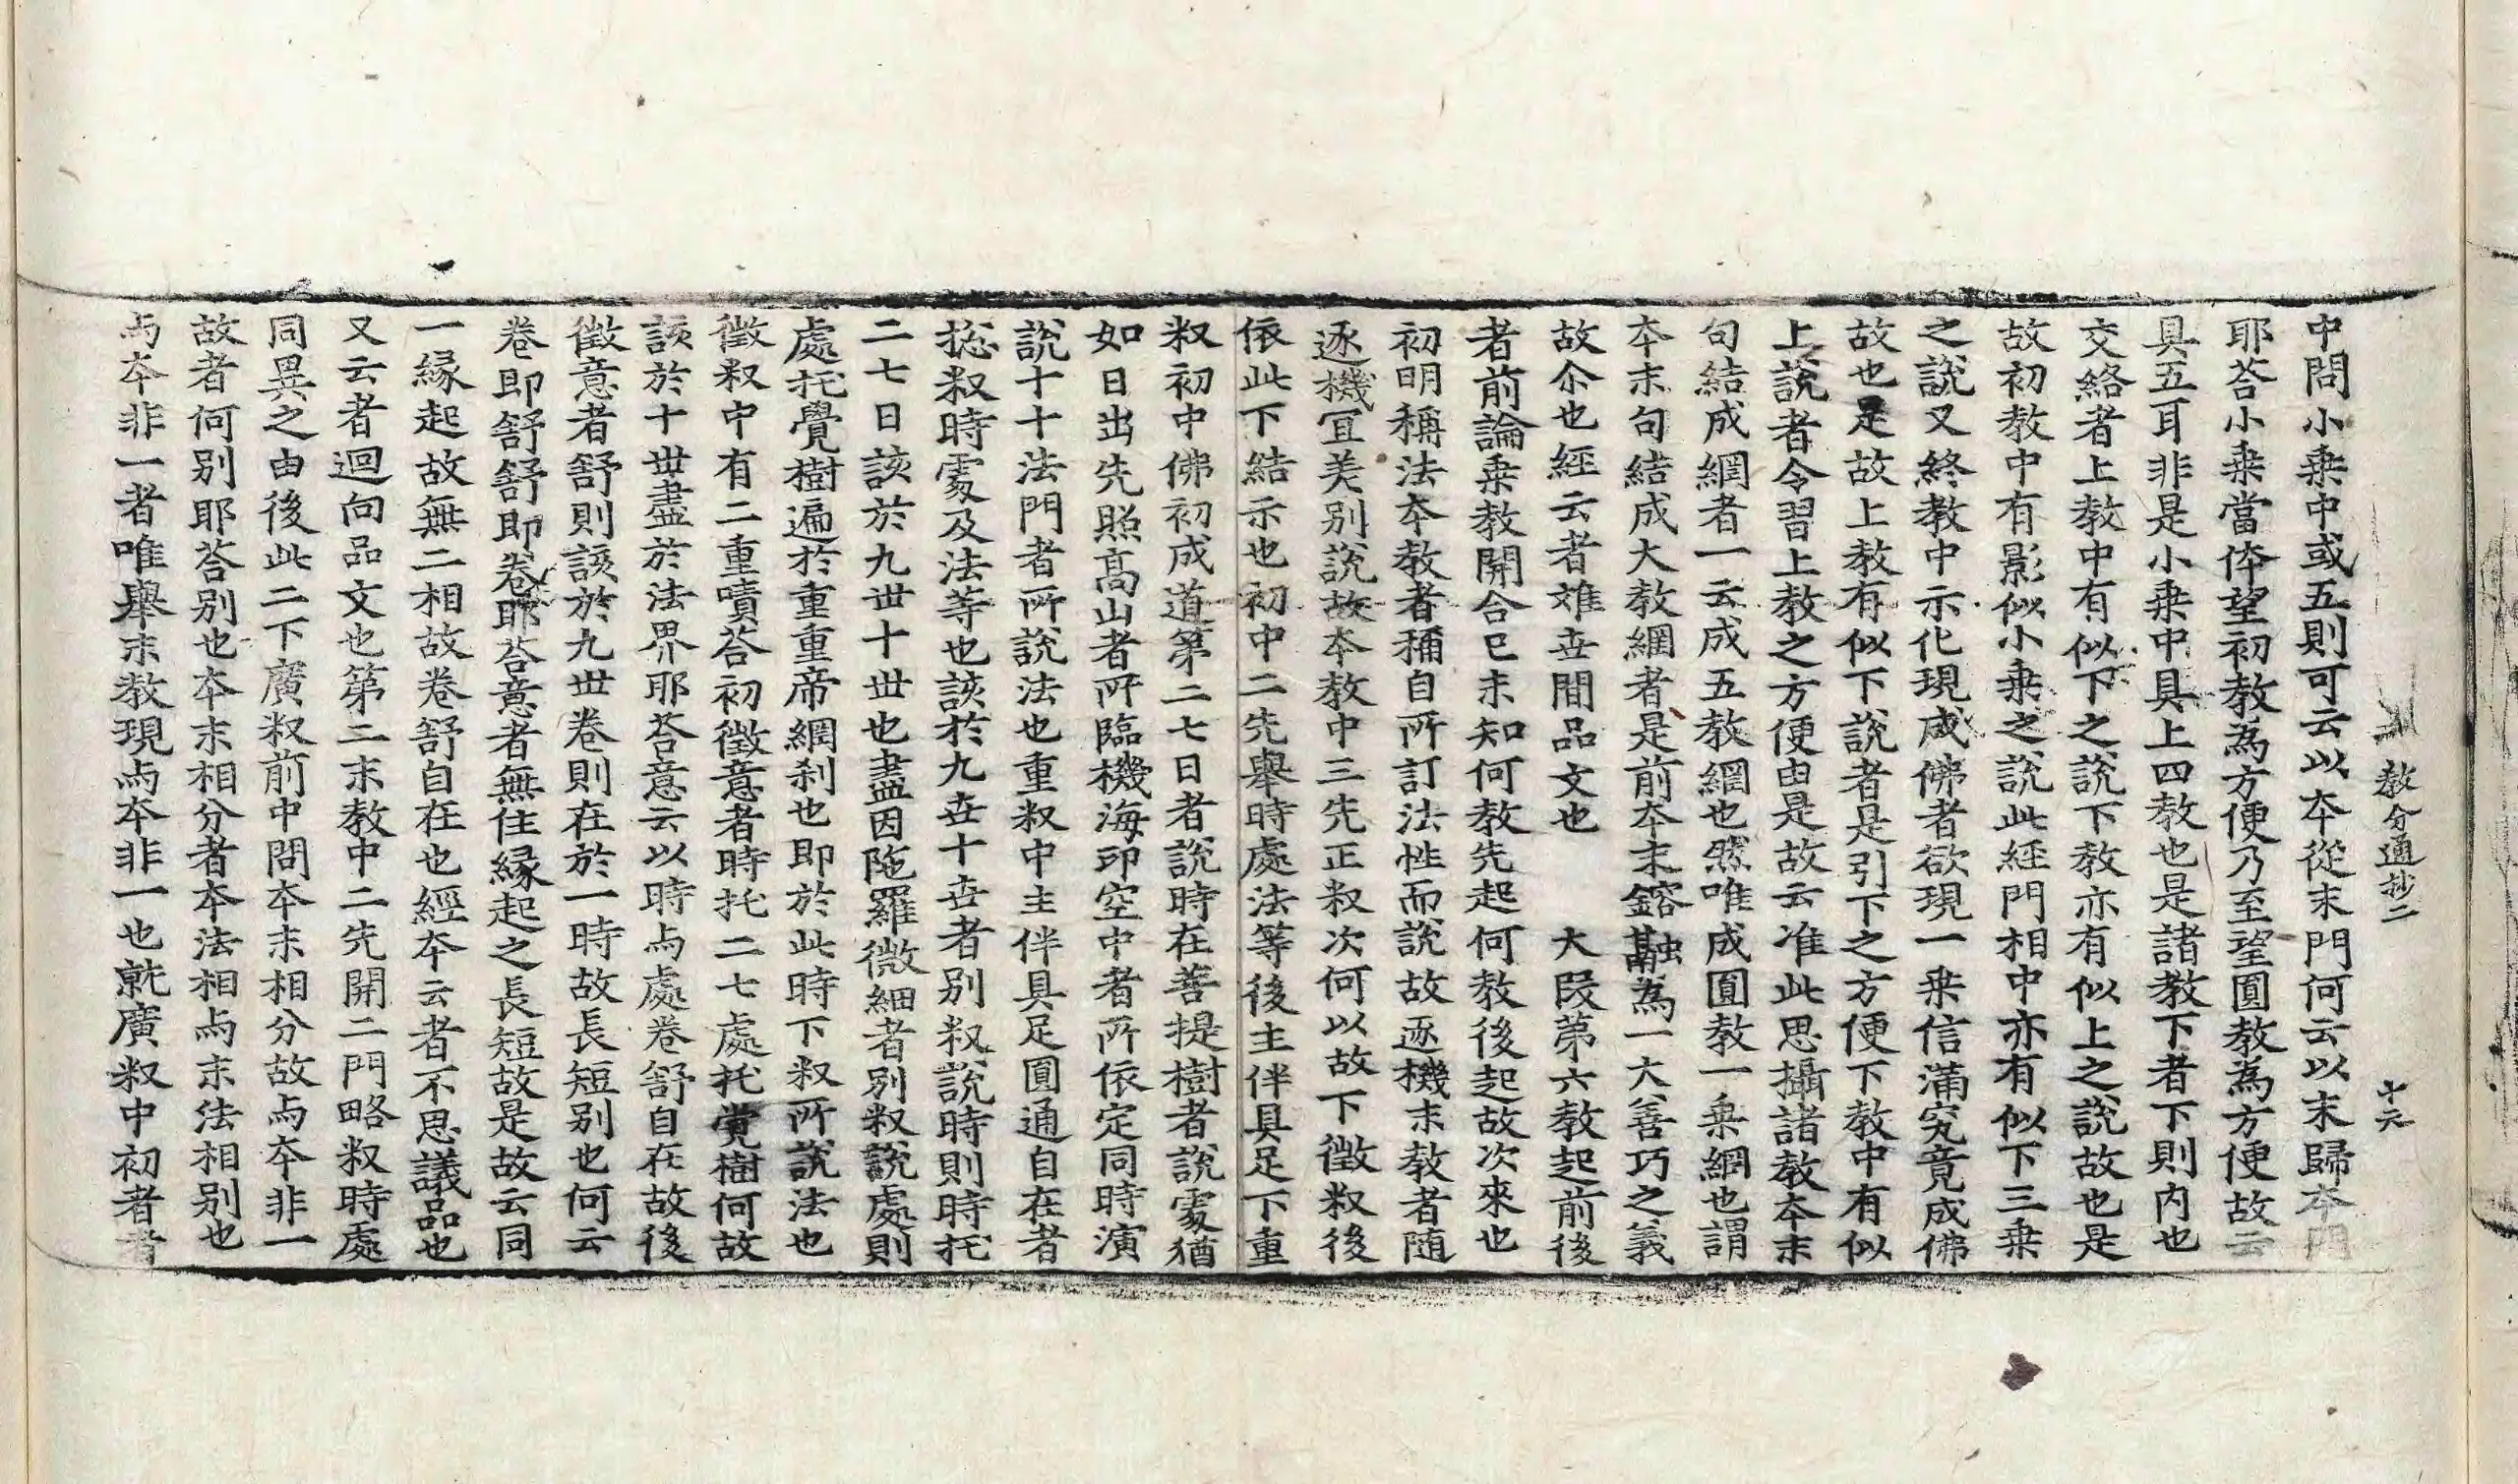 教分通抄二　十六
中問小乗中或五則可云以夲從末門何云以末歸夲門
耶荅小乗當体望初教為方便乃至望圓教為方便故云
具五耳非是小乗中具上四教也是諸教下者下則内也
交絡者上教中有似下之說下教亦有似上之說故也是
故初教中有影似小乗之說此経門相中亦有似下三乗
之說又終教中示化現成佛者欲現一乗信滿究竟成佛
故也是故上教有似下說者是引下之方便下教中有似
上說者令習上教之方便由是故云准此思攝諸教夲末
句結成網者一云成五教網也然唯成圓教一乗網也謂
夲末句結成大教網者是前夲末鎔融為一大善巧之義
故尒也経云者難丗間品文也　　大段第六教起前後
者前論乗教開合已未知何教先起何教後起故次來也
初明稱法夲教者稱自所訂法性而說故逐機末教者随
逐機冝羙别說故夲教中三先正叙次何以故下徵叙後
依此下結示也初中二先舉時處法等後主伴具足下重
叙初中佛初成道第二七日者說時在菩提樹者說處猶
如日出先照髙山者所臨機海印空中者所依定同時演
說十十法門者所說法也重叙中主伴具足圓通自在者
揔叙時處及法等也該於九丗十丗者别叙說時則時托
二七日該於九丗十丗也盡因陁羅微細者别叙說處則
處托覺樹遍於重重帝網刹也即於此時下叙所說法也
徵叙中有二重嘖荅初徵意者時托二七處托覺樹何故
該於十丗盡於法界耶荅意云以時与處卷舒自在故後
徵意者舒則該於九丗卷則在於一時故長短别也何云
卷即舒舒即卷耶荅意者無住縁起之長短故是故云同
一縁起故無二相故卷舒自在也經夲云者不思議品也
又云者迴向品文也第二末教中二先開二門略叙時處
同異之由後此二下廣叙前中問夲末相分故与夲非一
故者何别耶荅别也夲末相分者夲法相与末法相别也
与夲非一者唯舉末教現与夲非一也就廣叙中初者者